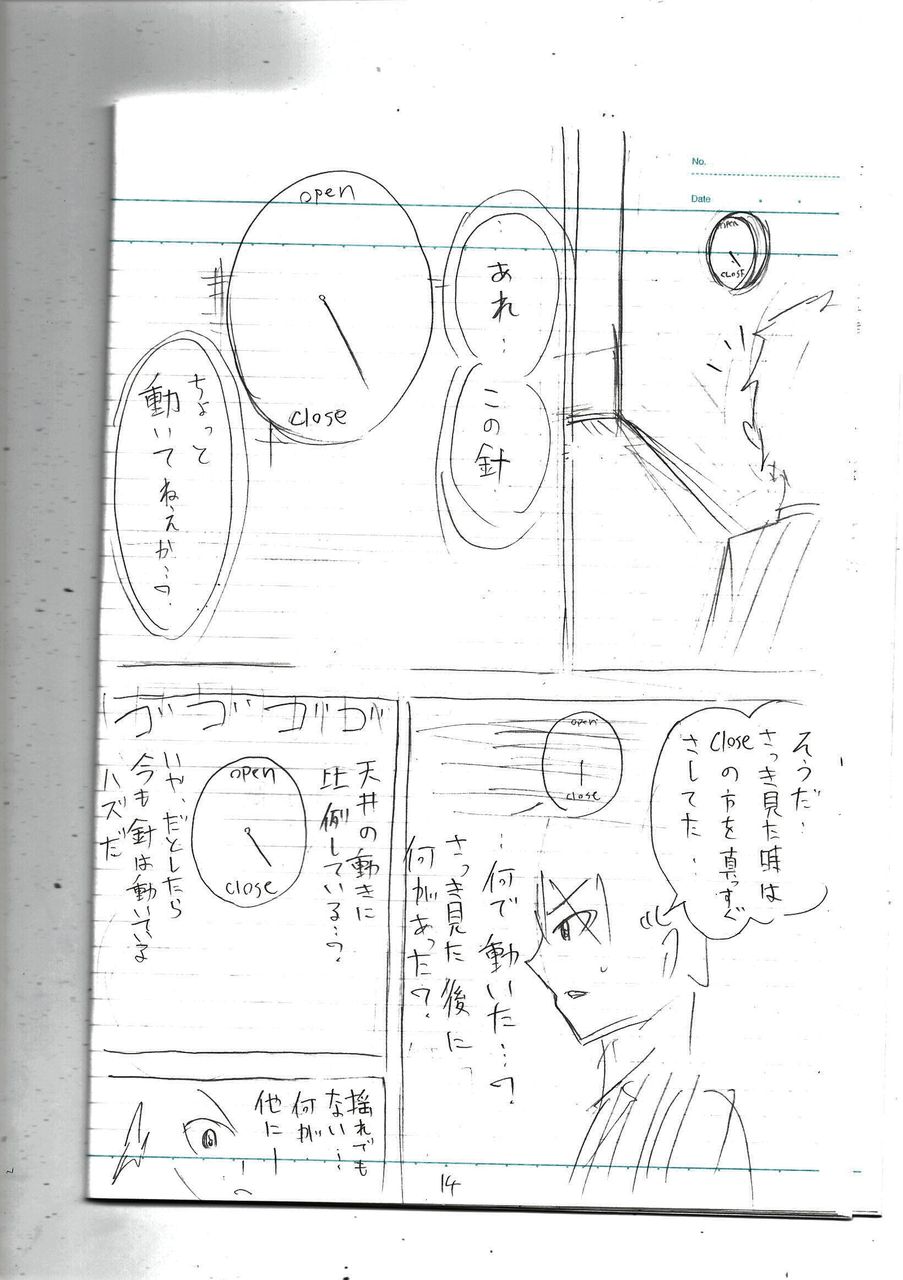 No.
Date
open
close
…
あれ…
この針
open
close
ちょっと
動いてねぇか…?
そうだ…
さっき見た時は
closeの方を真っすぐ
さしてた…
open
close
…何で動いた…?
さっき見た後に
何があった?
天井の動きに
比例している…?
open
close
いや、だとしたら
今も針は動いている
ハズだ
ゴゴゴゴ
揺れでも
ない…
何か
他に―
14